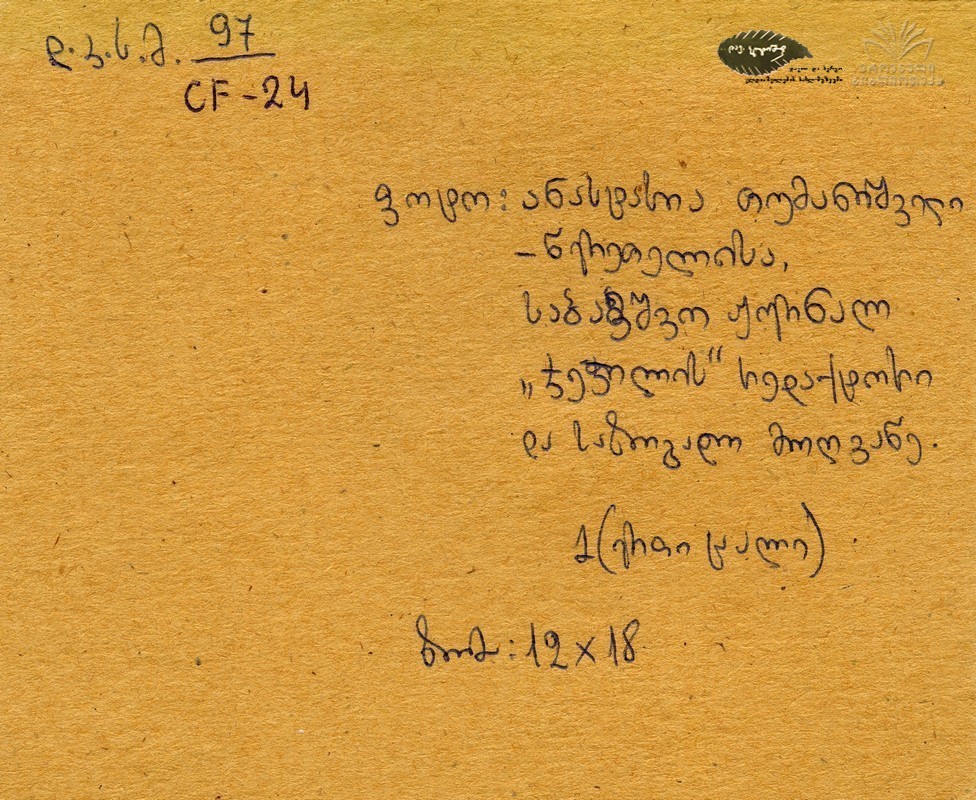 დ. კ. ს. მ. 97
CF-24
ფოტო: ანასტასია თუმანიშვილი
-წერეთელისა,
საბავშვო ჟურნალ
„ჯეჯილის" რედაქტორი
და საზოგადო მოღვაწე.
1 (ერთი ცალი)
ზომ: 12 x 18